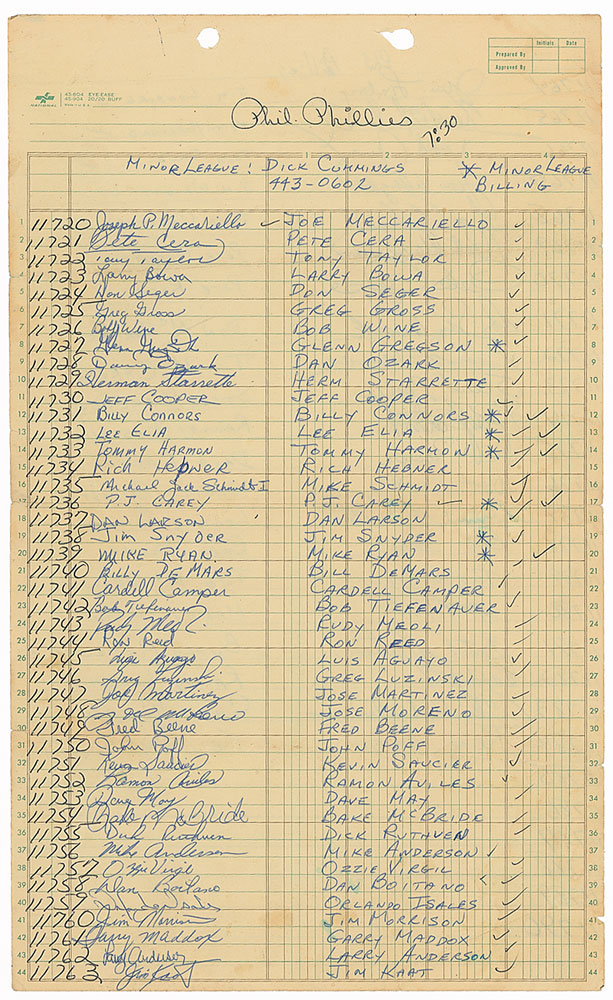 Initials Date
Prepared By
Approved By
NATIONAL 45-604 EYE-EASE
45-904 20/20 BUFF
MADE IN U.S.A.
Phil. Phillies 7:30
1 2 3 4
MINOR LEAGUE: DICK CUMMINGS * MINOR LEAGUE
443-0602 BILLING
1 11720 Joseph P. Meccariello ✓ JOE MECCARIELLO ✓ 1
2 11721 Pete Cera PETE CERA – ✓ 2
3 11722 Tony Taylor TONY TAYLOR ✓ 3
4 11723 Larry Bowa LARRY BOWA ✓ 4
5 11724 Don Seger DON SEGER ✓ 5
6 11725 Greg Gross GREG GROSS ✓ 6
7 11726 Bob Wine BOB WINE ✓ 7
8 11727 GLENN GREGSON * ✓ 8
9 11728 Danny Ozark DAN OZARK ✓ 9
10 11729 Herman Starrette HERM STARRETTE ✓ 10
11 11730 JEFF COOPER JEFF COOPER ✓ 11
12 11731 BILLY CONNORS BILLY CONNORS * ✓ ✓ 12
13 11732 LEE ELIA LEE ELIA * ✓ ✓ 13
14 11733 TOMMY HARMON TOMMY HARMON * ✓ ✓ 14
15 11734 Rich Hebner RICH HEBNER ✓ 15
16 11735 Michael Jack Schmidt I MIKE SCHMIDT ✓ 16
17 11736 P.J. CAREY P.J. CAREY – * ✓ ✓ 17
18 11737 DAN LARSON DAN LARSON ✓ 18
19 11738 Jim Snyder JIM SNYDER * ✓ 19
20 11739 MIKE RYAN. MIKE RYAN * ✓ 20
21 11740 BILLY DE MARS BILL DEMARS ✓ 21
22 11741 Cardell Camper CARDELL CAMPER ✓ 22
23 11742 Bob Tiefenauer BOB TIEFENAUER ✓ 23
24 11743 Rudy Meoli RUDY MEOLI ✓ 24
25 11744 Ron Reed RON REED ✓ 25
26 11745 Luis Aguayo LUIS AGUAYO ✓ 26
27 11746 Greg Luzinski GREG LUZINSKI ✓ 27
28 11747 Jose Martinez JOSE MARTINEZ ✓ 28
29 11748 Jose Moreno JOSE MORENO ✓ 29
30 11749 Fred Beene FRED BEENE ✓ 30
31 11750 John Poff JOHN POFF ✓ 31
32 11751 Kevin Saucier KEVIN SAUCIER ✓ 32
33 11752 Ramon Aviles RAMON AVILES ✓ 33
34 11753 Dave May DAVE MAY ✓ 34
35 11754 Bake McBride BAKE MCBRIDE ✓ 35
36 11755 Dick Ruthven DICK RUTHVEN ✓ 36
37 11756 Mike Anderson MIKE ANDERSON ✓ 37
38 11757 Ozzie Virgil OZZIE VIRGIL ✓ 38
39 11758 Dan Boitano DAN BOITANO ✓ 39
40 11759 ORLANDO ISALES ✓ 40
41 11760 Jim Morrison JIM MORRISON ✓ 41
42 11761 Garry Maddox GARRY MADDOX ✓ 42
43 11762 Larry Anderson LARRY ANDERSON ✓ 43
44 11763 Jim Kaat JIM KAAT ✓ 44